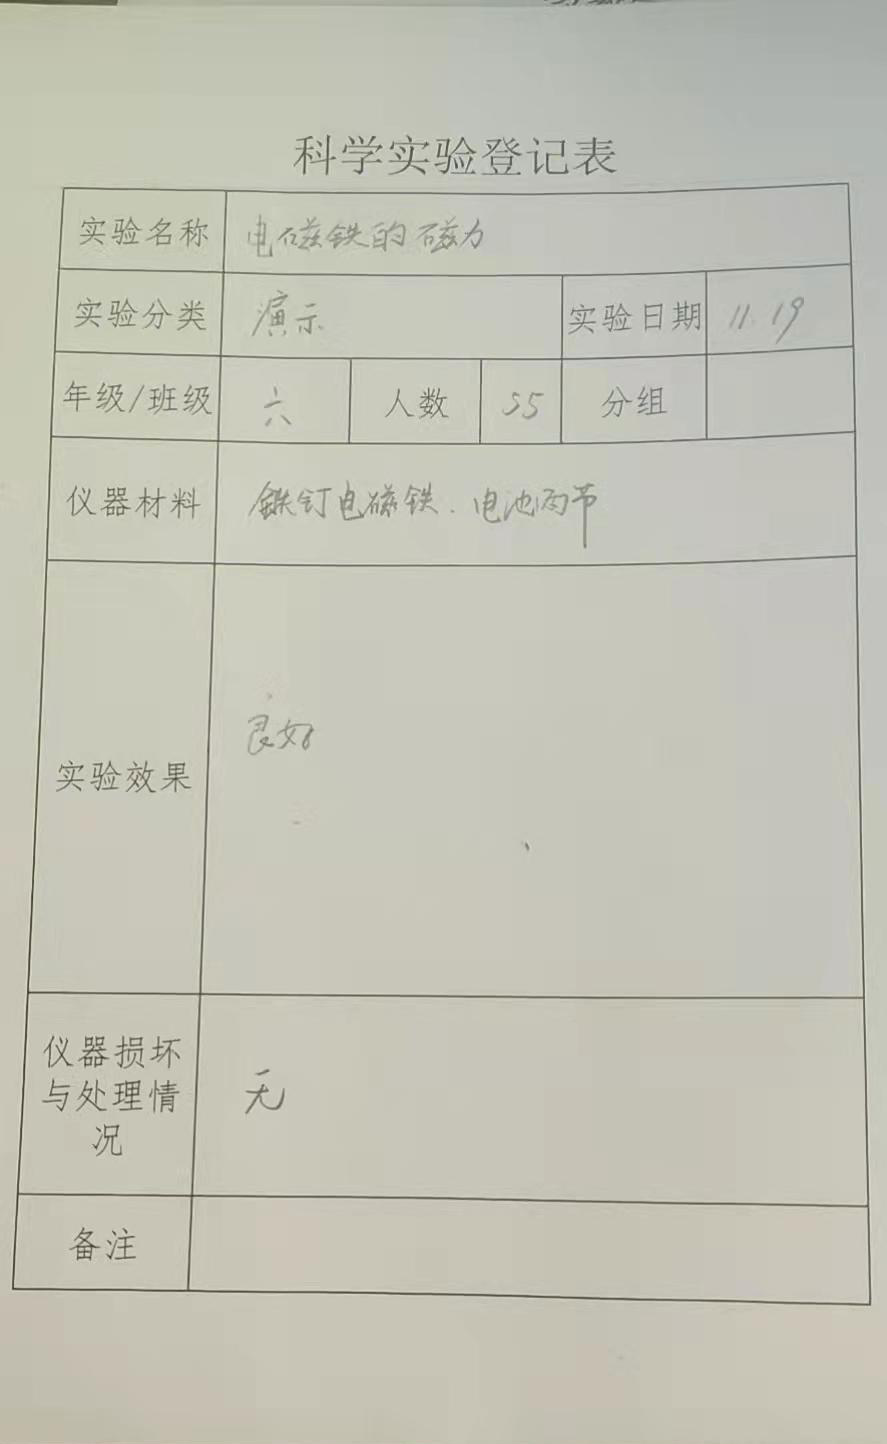 科学实验登记表
实验名称 电磁铁的磁力
实验分类 演示 实验日期 11.19
年级/班级 六 人数 55 分组
仪器材料 铁钉电磁铁.电池两节
实验效果 良好
仪器损坏
与处理情
况
无
备注